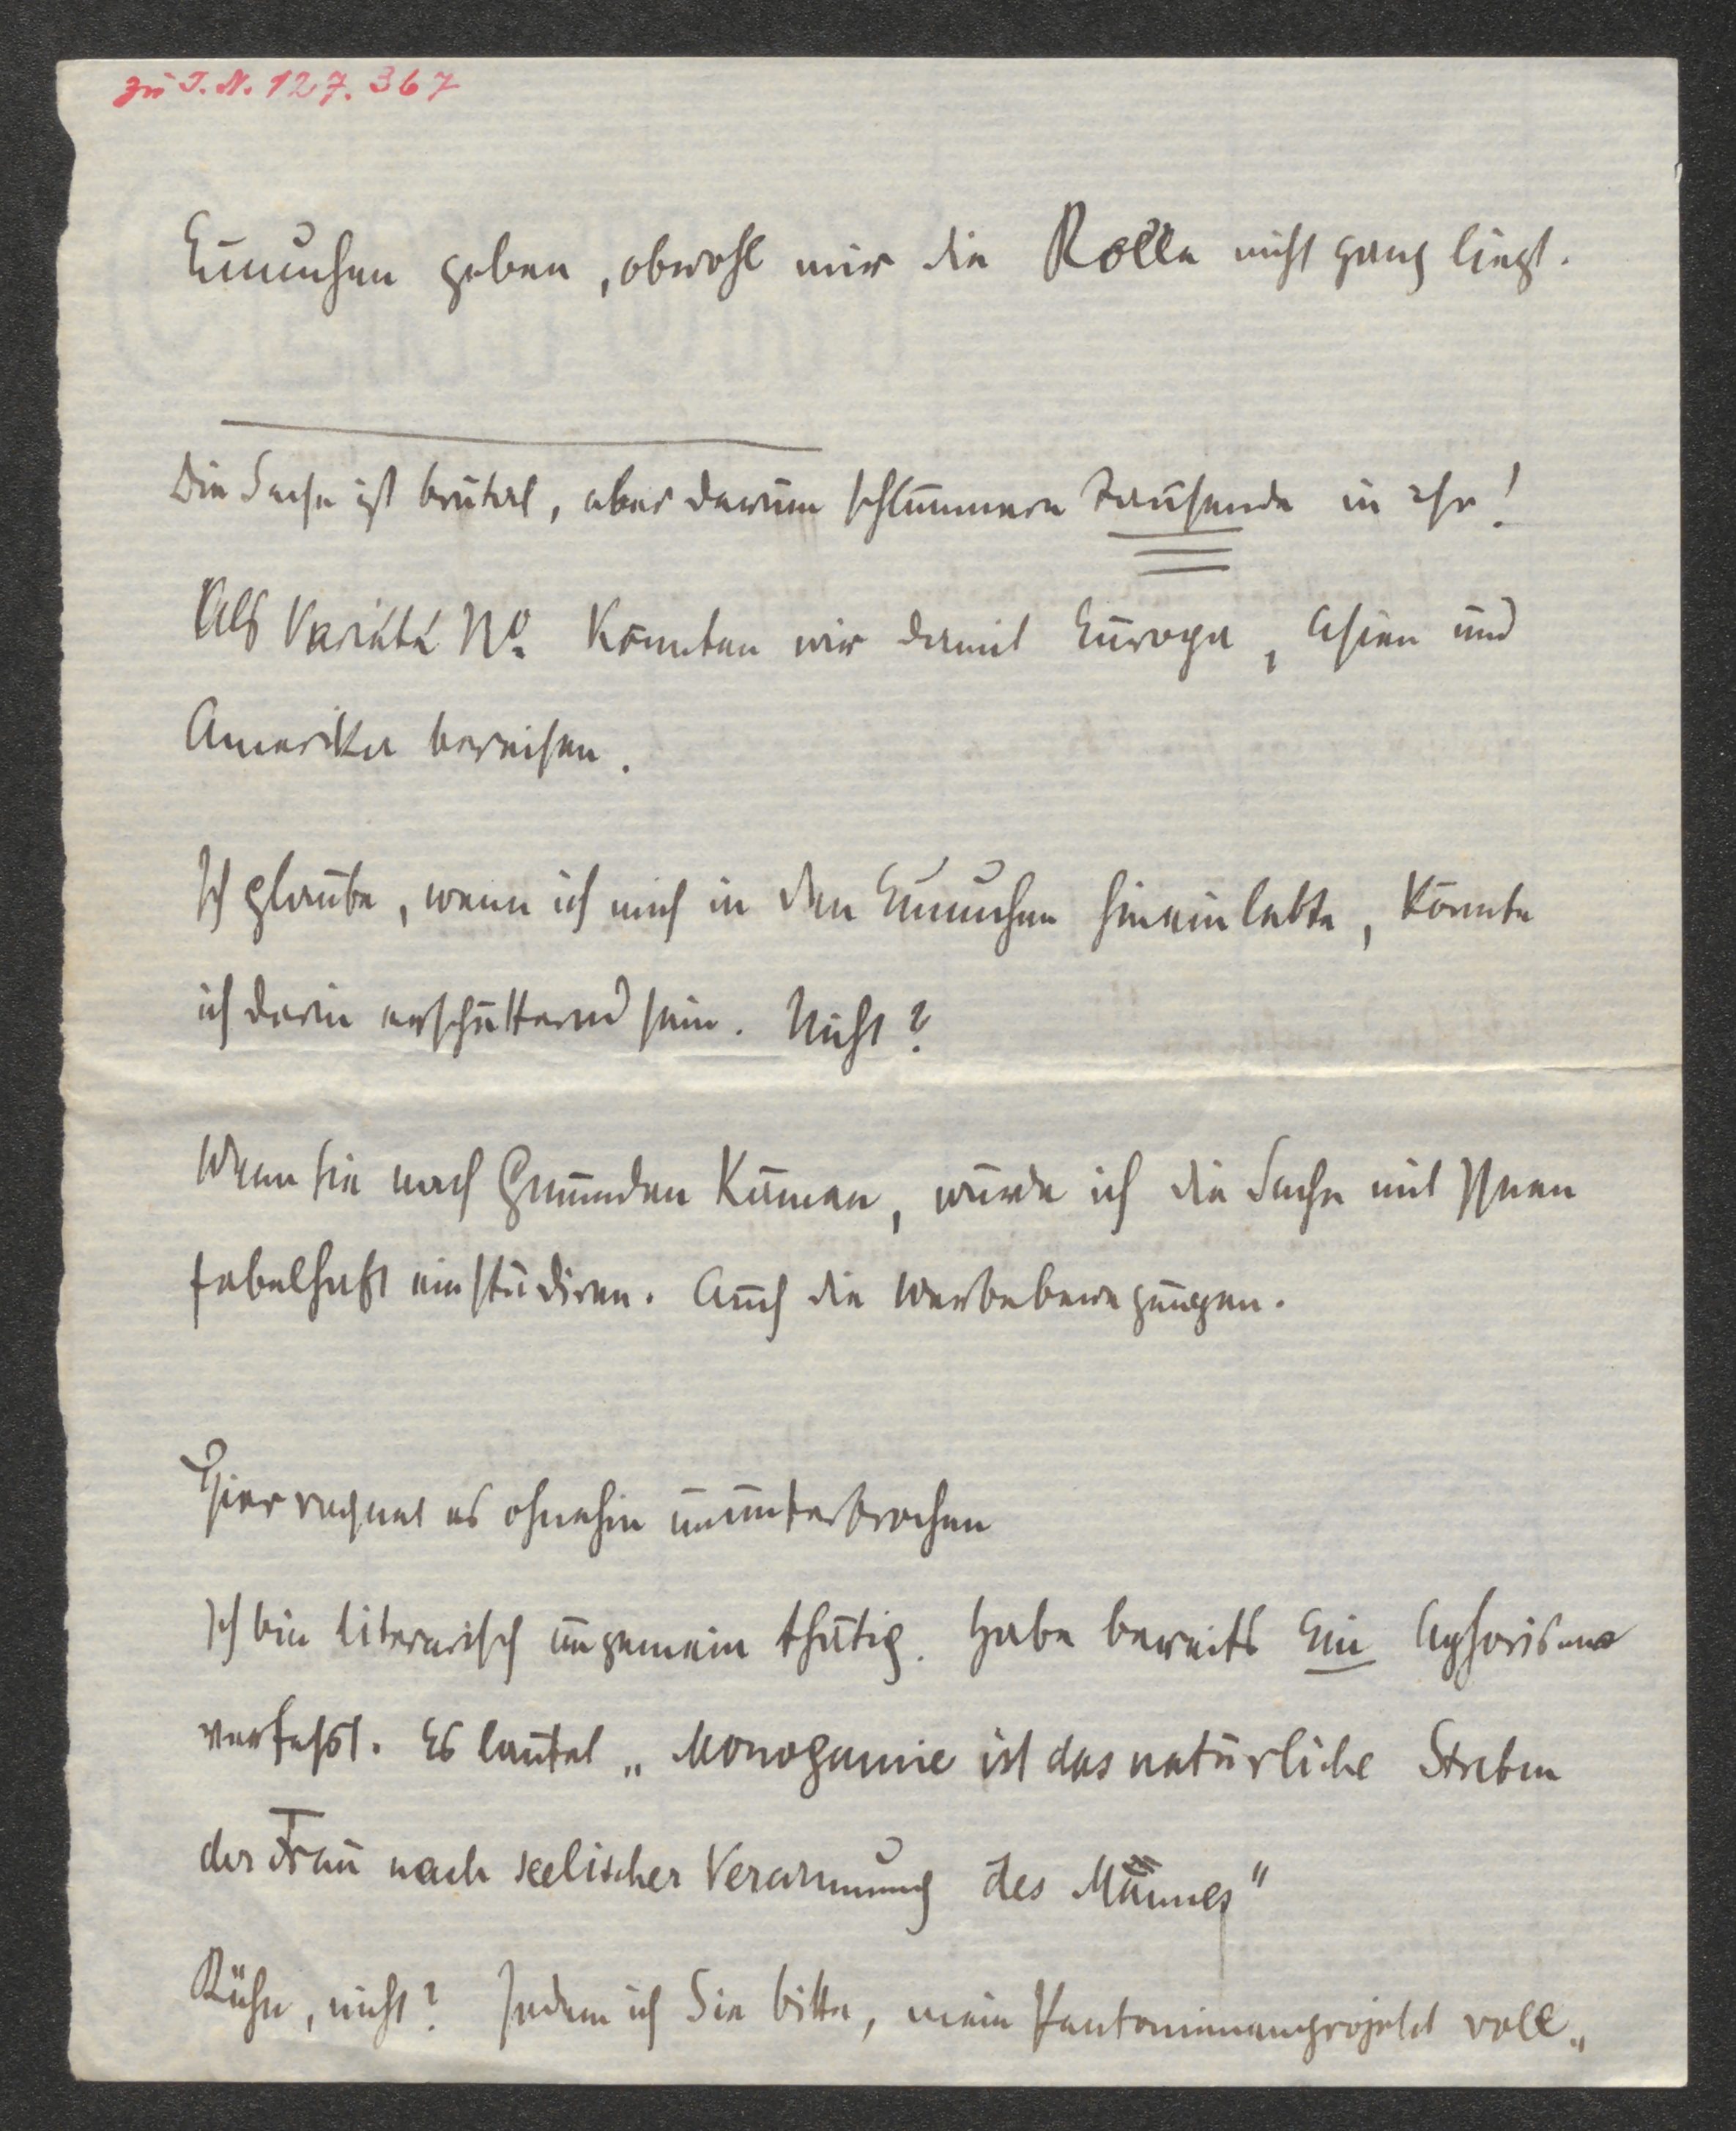 zu I.N. 127.367
Eunuchen geben, obwohl mir die Rolle nicht ganz liegt.
Die Sache ist brutal, aber darum schlummern Tausende in ihr!
Als Varieté No. könnten wir damit Europa, Asien und
Amerika bereisen.
Ich glaube, wenn ich mich in den Eunuchen hineinlebte, könnte
ich darin erschütternd sein. Nicht?
Wenn Sie nach Gmunden kämen, würde ich die Sache mit Ihnen
fabelhaft einstudiren. Auch die Werbebewegungen.
Hier regnet es ohnehin ununterbrochen
Ich bin literarisch ungemein thätig. Habe bereits Ein Aphorisma
verfasst. Es lautet „Monogamie ist das natürliche Streben
der Frau nach seelischer Verarmung des Mannes"
Kühn, nicht? Indem ich Sie bitte, mein Pantomimenprojekt voll„